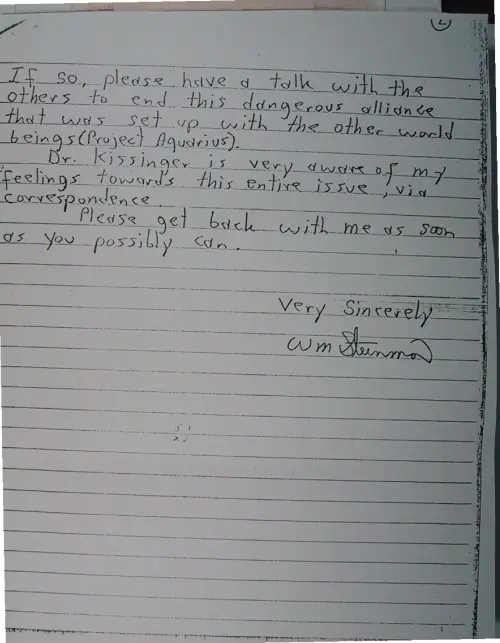 2
If so, please have a talk with the
others to end this dangerous alliance
that was set up with the other world
beings (Project Aquarius).
Dr. Kissinger is very aware of my
feelings towards this entire issue, via
correspondence.
Please get back with me as soon
as you possibly can.
Very Sincerely
Wm Steinman